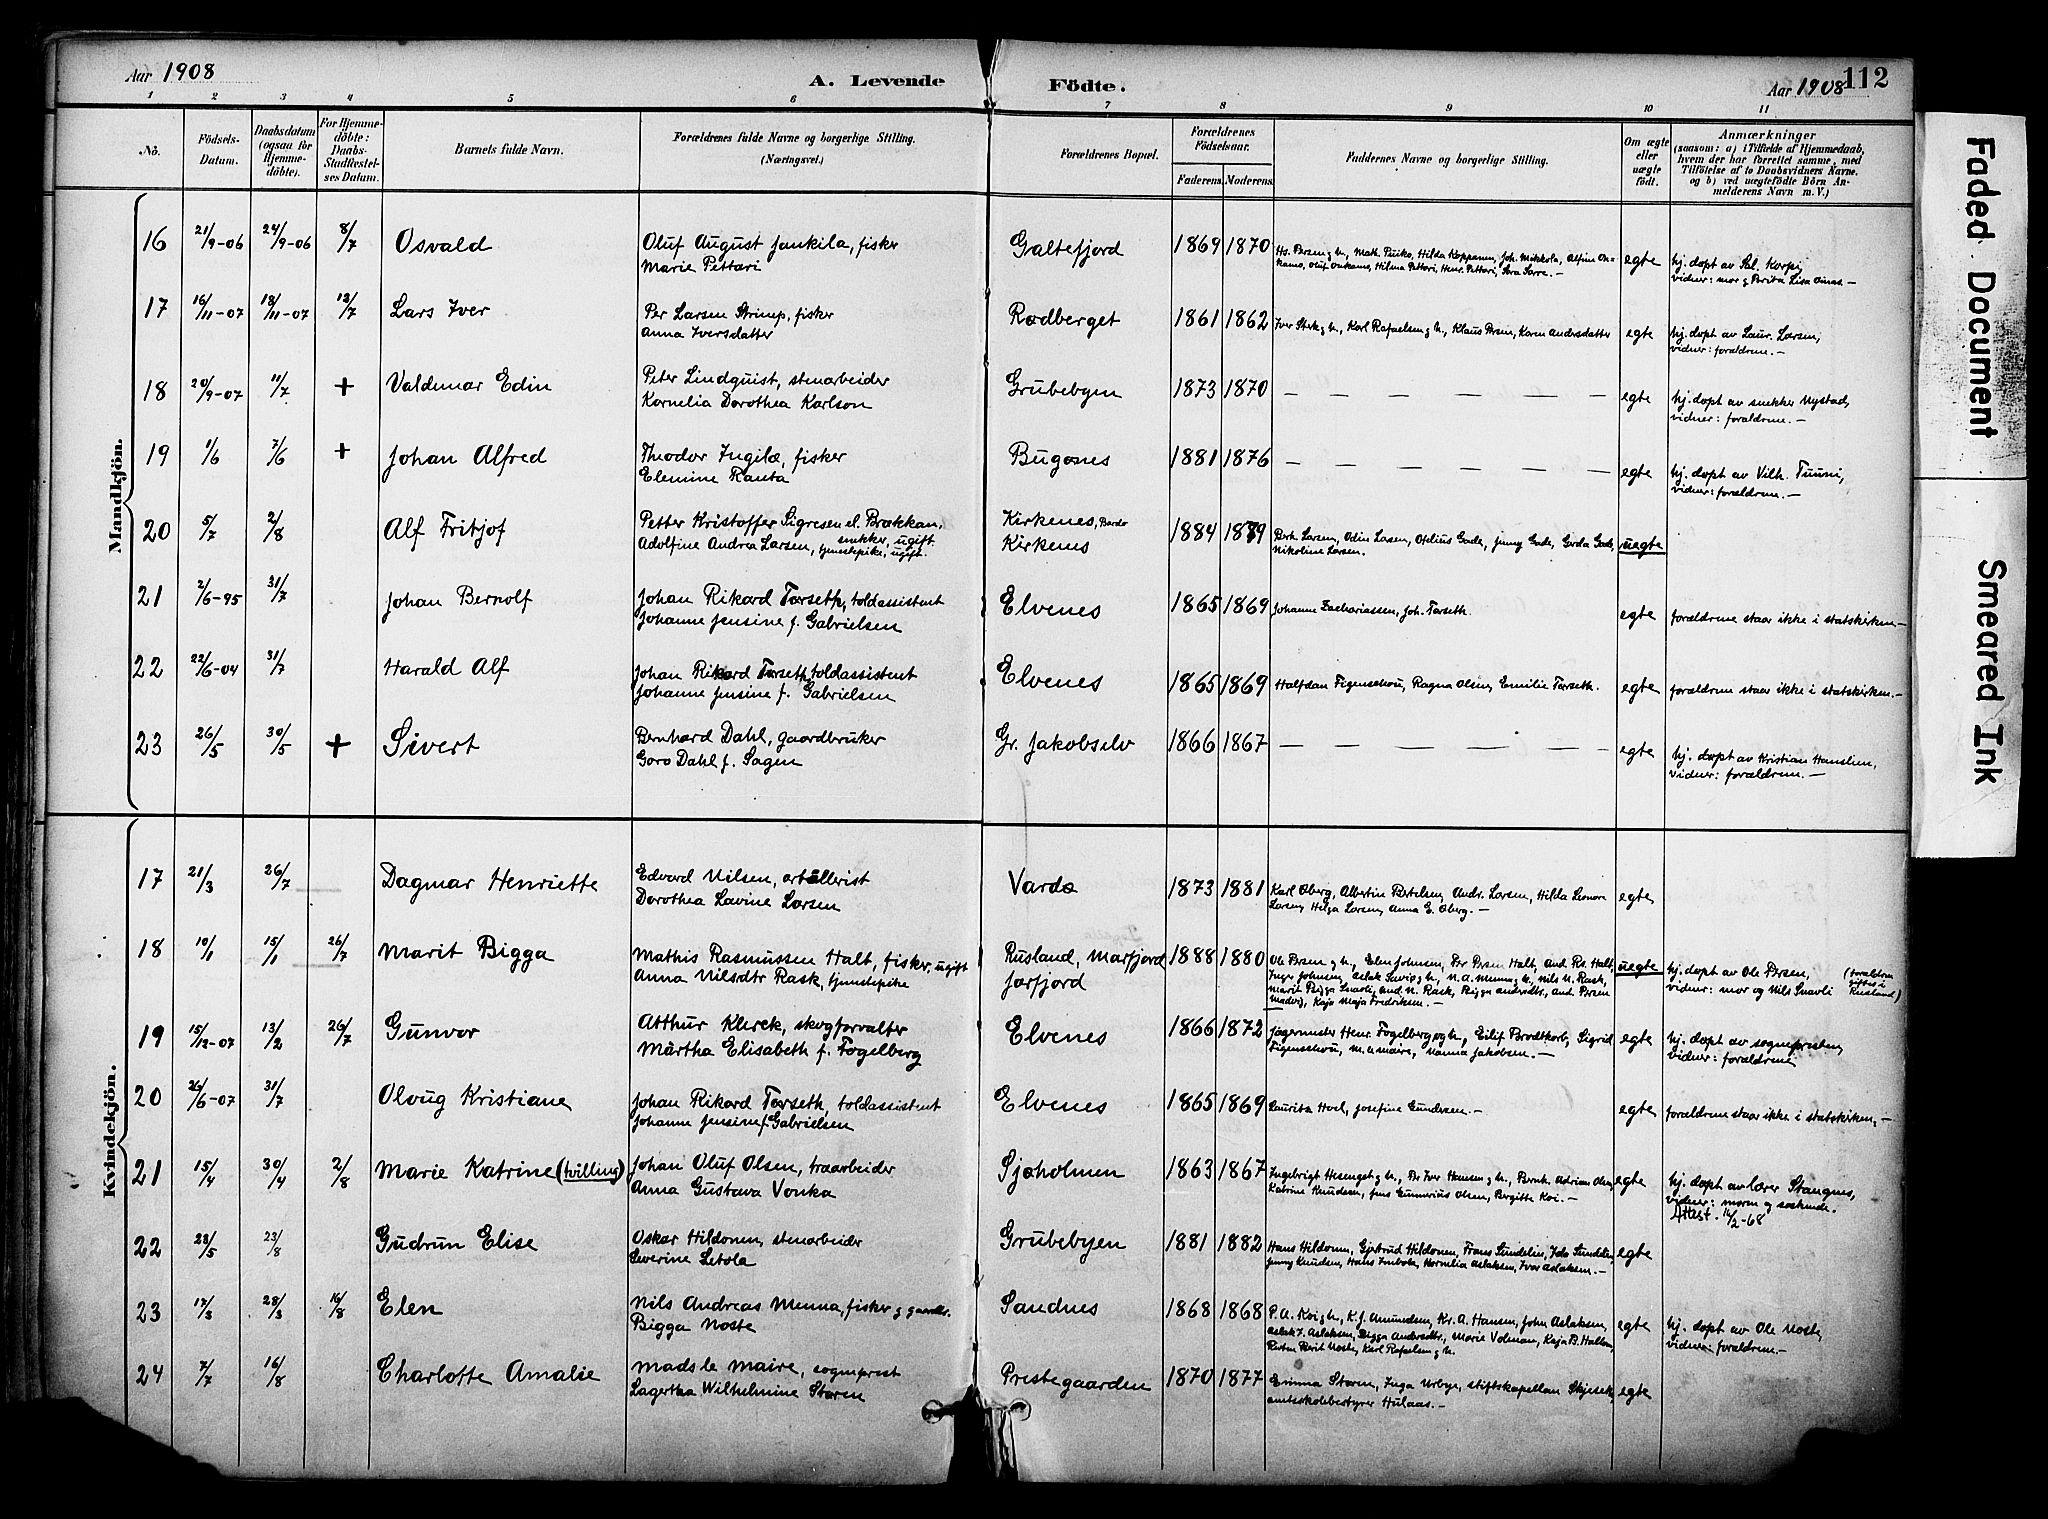 Aar 1908
A. Levende
Födte.
Aar 1908
112
1 2 3 4 5 6 7 8 9 10 11
No.
Födsels-Datum.
Daabsdatum (ogsaa for Hjemmedöbte).
For Hjemmedöbte: Daabs-Stadfæstelses Datum.
Barnets fulde Navn.
Forældrenes fulde Navne og borgerlige Stilling. (Næringsvei.)
Forældrenes Bopæl.
Forældrenes Födselsaar.
Faderens. Moderens.
Faddernes Navne og borgerlige Stilling.
Om ægte eller uægte födt.
Anmærkninger
(saasom: a) i Tilfælde af Hjemmedaab, hvem der har forrettet samme, med Tilföielse af to Daabsvidners Navne, og b) ved uægtefödte Börn Anmelderens Navn m. V.)
Mandkjön.
16 21/9-06 24/9-06 8/7 Osvald
Oluf August Jankila, fisker
Marie Pettari
Galtefjord 1869 1870
egte
hj. døpt av Sal. Korpi,
vidner: mor g Brita Lisa
17 16/11-07 18/11-07 12/7 Lars Iver
Per Larsen Strimp, fisker
Anna Iversdatter
Rødberget 1861 1862
Karl Rafaelsen g h., Klaus Persen, Karen Andersdatter
egte
hj. døpt av Laur. Larsen,
vidner: forældrene. —
18 20/9-07 11/7 + Valdemar Edin
Peter Lindquist, stenarbeider
Kornelia Dorothea Karlson
Grubebyen 1873 1870 — — — — — —
egte
hj. døpt av snekker Nystad,
vidner: forældrene. —
19 1/6 7/6 + Johan Alfred
Theodor Ingilæ, fisker
Elemine Ranta
Bugønes 1881 1876 — — — — — —
egte
hj. døpt av Vilh. Tuuni,
vidner: forældrene. —
20 5/7 2/8 Alf Fritjof
Petter Kristoffer Sigresen el. Brækkan,
snekker, ugift.
Adolfine Andrea Larsen, tjenstepike, ugift.
Kirkenes, Bardo
Kirkenes
1884 1879
Berh. Larsen, Odin Larsen, Otelius Gade, Jenny Gade, Gerda Gade,
Nikoline Larsen.
uegte
21 2/6-95 31/7 Johan Bernolf
Johan Rikard Tørseth, toldassistent
Johanne Jensine f. Gabrielsen
Elvenes 1865 1869
Johanne Zachariassen, Joh. Tørseth.
egte
forældrene staar ikke i statskirken —
22 22/6-04 31/7 Harald Alf
Johan Rikard Tørseth, toldassistent
Johanne Jensine f. Gabrielsen
Elvenes 1865 1869
Halfdan Figenschou, Ragna Olsen, Emilie Tørseth.
egte
forældrene staar ikke i statskirken. —
23 26/5 30/5 + Sivert
Bernhard Dahl, gaardbruker
Goro Dahl f. Sagen
Gr. Jakobselv 1866 1867 — — — — — —
egte
hj. døpt av Kristian Hanslien,
vidner: forældrene. —
Kvindekjön.
17 21/3 26/7 Dagmar Henriette
Edvard Nilsen, artillerist
Dorothea Lavine Larsen
Vardø 1873 1881
Karl Øberg, Albertin Bertelsen, Andr. Larsen, Hilda Leonore
Larsen, Helga Larsen, Anna E. Øberg. —
egte
18 10/1 15/1 26/7 Marit Bigga
Mathis Rasmussen Halt, fisker, ugift
Anna Nilsdtr Rask, tjenstepike
Rusland, Marfjord
Jarfjord
1888 1880
Ole Persen g h., Elen Johnsen, Per Persen Halt, And. Rs. Halt,
Inger Johnsen, Aslak Savio g h., N. A. Menna g h., Nils N. Rask,
Marit Bigga Snavli, And. N. Rask, Bigga Andersdtr, And. Persen
Kaja Maja Fredriksen. —
uegte
hj. døpt av Ole Persen,
vidner: mor og Nils Snavli
(forældrene giftes i Rusland)
19 15/12-07 13/2 26/7 Gunvor
Arthur Klerck, skogforvalter
Märtha Elisabeth f. Fogelberg
Elvenes 1866 1872
Jægermester Henr. Fogelberg og h., Eilif Brodtkorb, Sigrid
Figenschou, M. le Maire, Nanna Jakobsen. —
egte
hj. døpt av sognepresten,
vidner: forældrene
20 26/6-07 31/7 Olvug Kristiane
Johan Rikard Tørseth, toldassistent
Johanne Jensine f. Gabrielsen
Elvenes 1865 1869
Laurits Hoel, Josefine Gundersen. —
egte
forældrene staar ikke i statskirken. —
21 15/4 30/4 2/8 Marie Katrine (tvilling)
Johan Oluf Olsen, træarbeider
Anna Gustava Vonka
Sjøholmen 1863 1867
Ingebrigt Hesenget g h., Per Iver Hansen g h., Bernh. Adrian Olsen,
Katrine Knudsen, Jens Gunnerius Olsen, Birgitte Koi. —
egte
hj. døpt av lærer Stangnes,
vidner: moren og søskende.
Attest. 16/2-68
22 23/5 23/8 Gudrun Elise
Oskar Hildonen, stenarbeider
Severine Letola
Grubebyen 1881 1882
Hans Hildonen, Gjertrud Hildonen, Frans Sundelin, Ida Sundelin,
Jenny Knudsen, Hans Imbola, Kornelia Aslaksen, Iver Aslaksen. —
egte
23 17/3 28/3 16/8 Elen
Nils Andreas Menna, fisker g gaardbr.
Bigga Noste
Sandnes 1868 1868
P. A. Koi g h., K. J. Amundsen, Kr. A. Hansen, John Aslaksen,
Aslak J. Aslaksen, Bigga Andersdtr, Marie Volman, Kaja B. Hallen,
Berit Noste, Karl Rafaelsen g h.
egte
hj. døpt av Ole Noste,
vidner: forældrene. —
24 7/7 16/8 Charlotte Amalie
Mads le Maire, sogneprest
Lagertha Wilhelmine Støren
Prestegaarden 1870 1877
Emma Støren, Inga Urbye, stiftskapellan Skjeseth,
amtsskolebestyrer Hulaas. —
egte
Faded Document
Smeared Ink